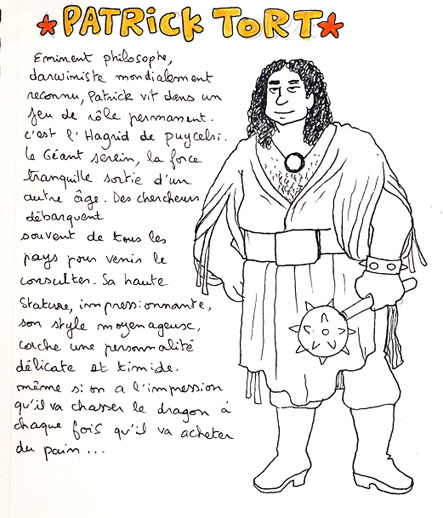 PATRICK TORT
Eminent philosophe,
darwiniste mondialement
reconnu, Patrick vit dans un
jeu de rôle permanent.
c'est l'Hagrid de puycelsi.
le Géant serein, la force
tranquille sortie d'un
autre âge. Des chercheurs
débarquent
souvent de tous les
pays pour venir le
consulter. Sa haute
stature, impressionnante,
son style moyenageuse,
cache une personnalité
délicate et timide.
même si on a l'impression
qu'il va chasser le dragon à
chaque fois qu'il va acheter
du pain...